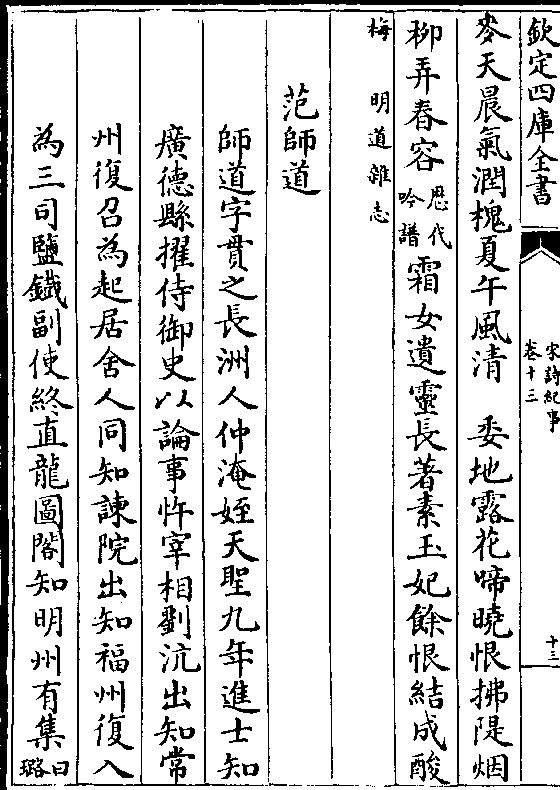 欽定四庫全書
宋詩紀事
卷十三
十三
麥天晨氣潤槐夏午風清　委地露花啼曉恨拂隄烟
柳弄春容歴代吟譜霜女遺靈長著素玉妃餘恨結成酸
梅　明道雜志
范師道
師道字貫之長洲人仲淹姪天聖九年進士知
廣德縣擢侍御史以論事忤宰相劉沆出知常
州復召為起居舍人同知諫院出知福州復入
為三司鹽鐵副使終直龍圖閣知明州有集曰璐